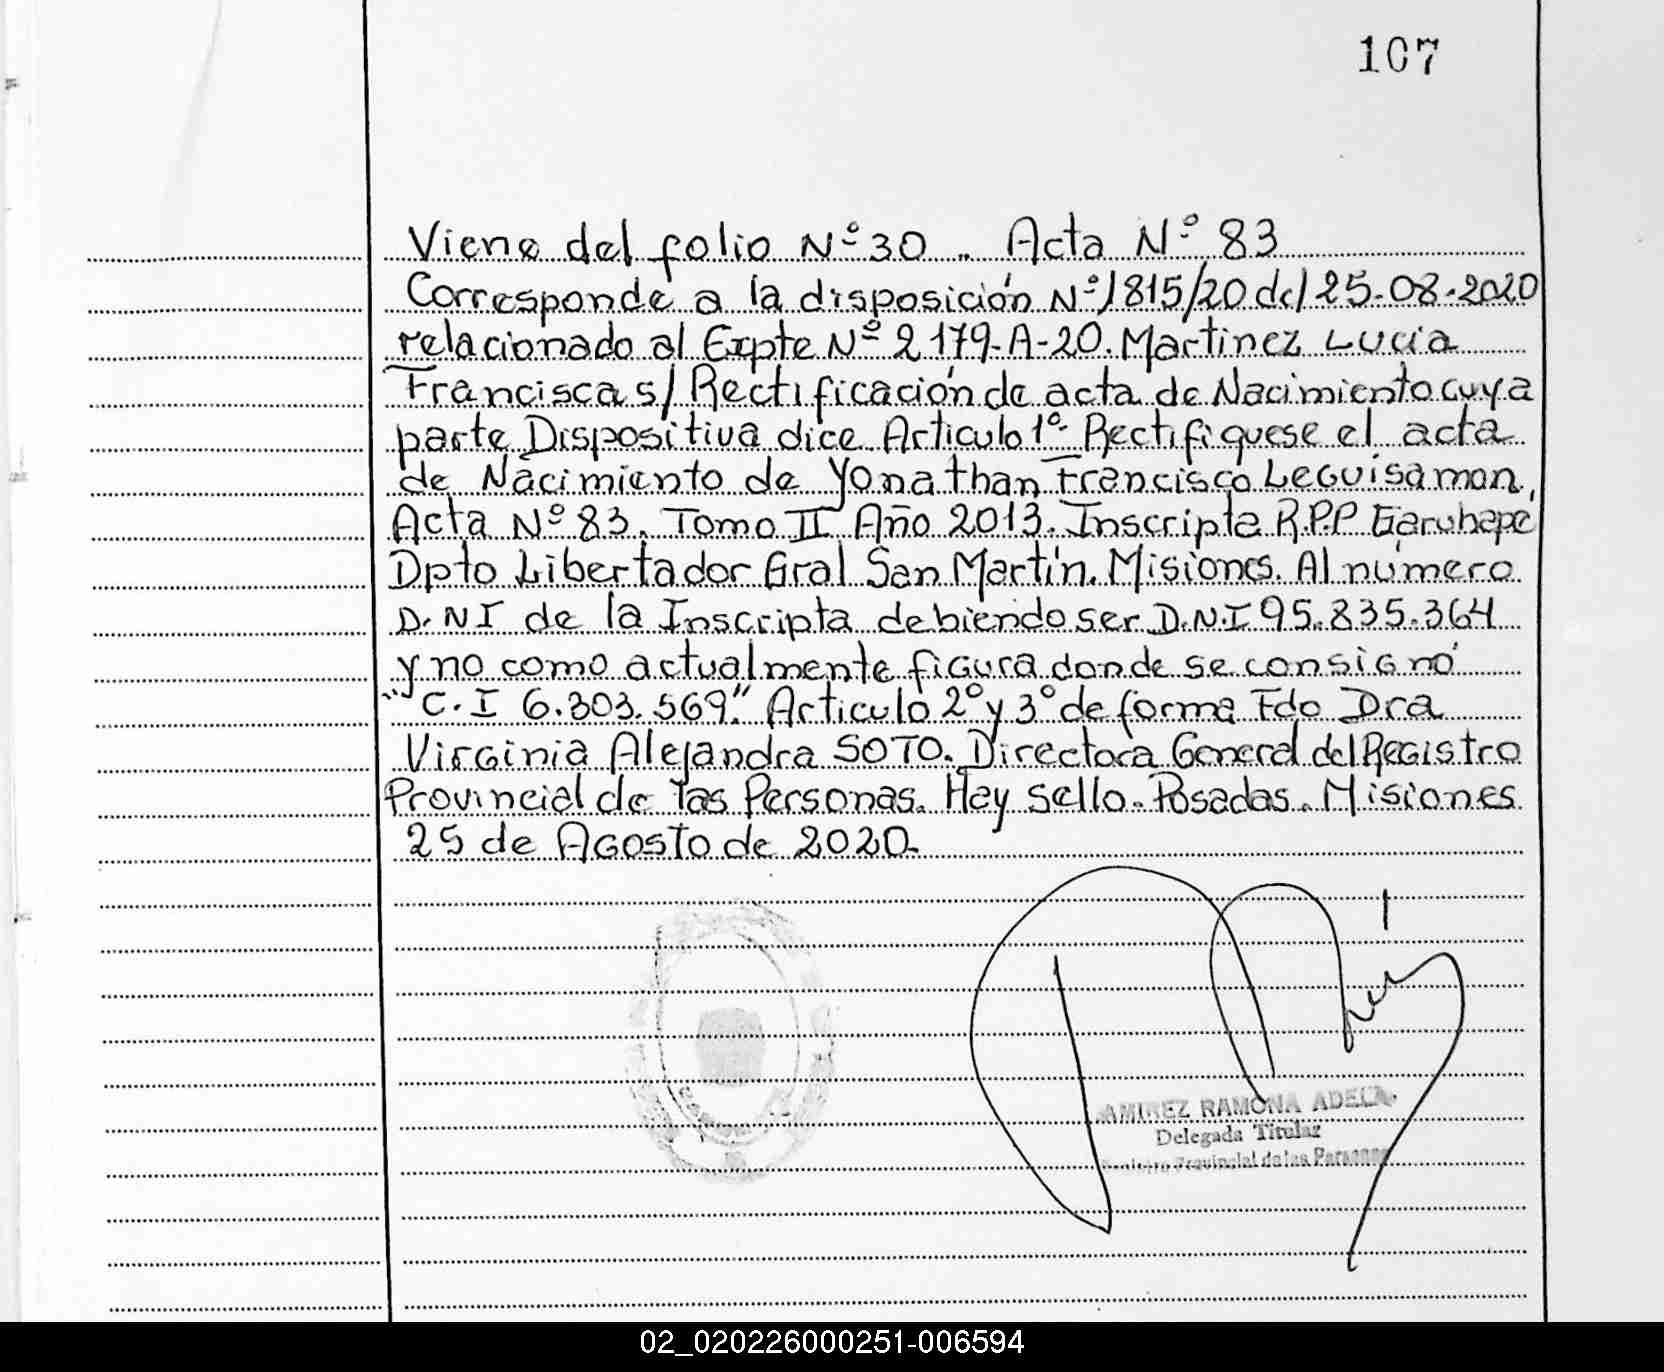 107
Viene del folio Nº 30. Acta Nº 83
Corresponde a la disposición Nº 1815/20 del 25-08-2020
relacionado al Expte Nº 2179-A-20. Martinez Lucia
Francisca s/ Rectificación de acta de Nacimiento cuya
parte Dispositiva dice Articulo 1º Rectifiquese el acta
de Nacimiento de Yonathan Francisco Leguisamon,
Acta Nº 83. Tomo II Año 2013. Inscripta R.P.P Garuhape
Dpto Libertador Gral San Martín. Misiones. Al número
D.NI de la Inscripta debiendo ser D.N.I 95.835.364
y no como actualmente figura donde se consignó
"C.I 6.303.569." Articulo 2º y 3º de forma Fdo Dra
Virginia Alejandra SOTO. Directora General del Registro
Provincial de las Personas. Hay sello. Posadas. Misiones
25 de Agosto de 2020.
AMIREZ RAMONA ADELA
Delegada Titular
Provincial de las Personas
02_020226000251-006594